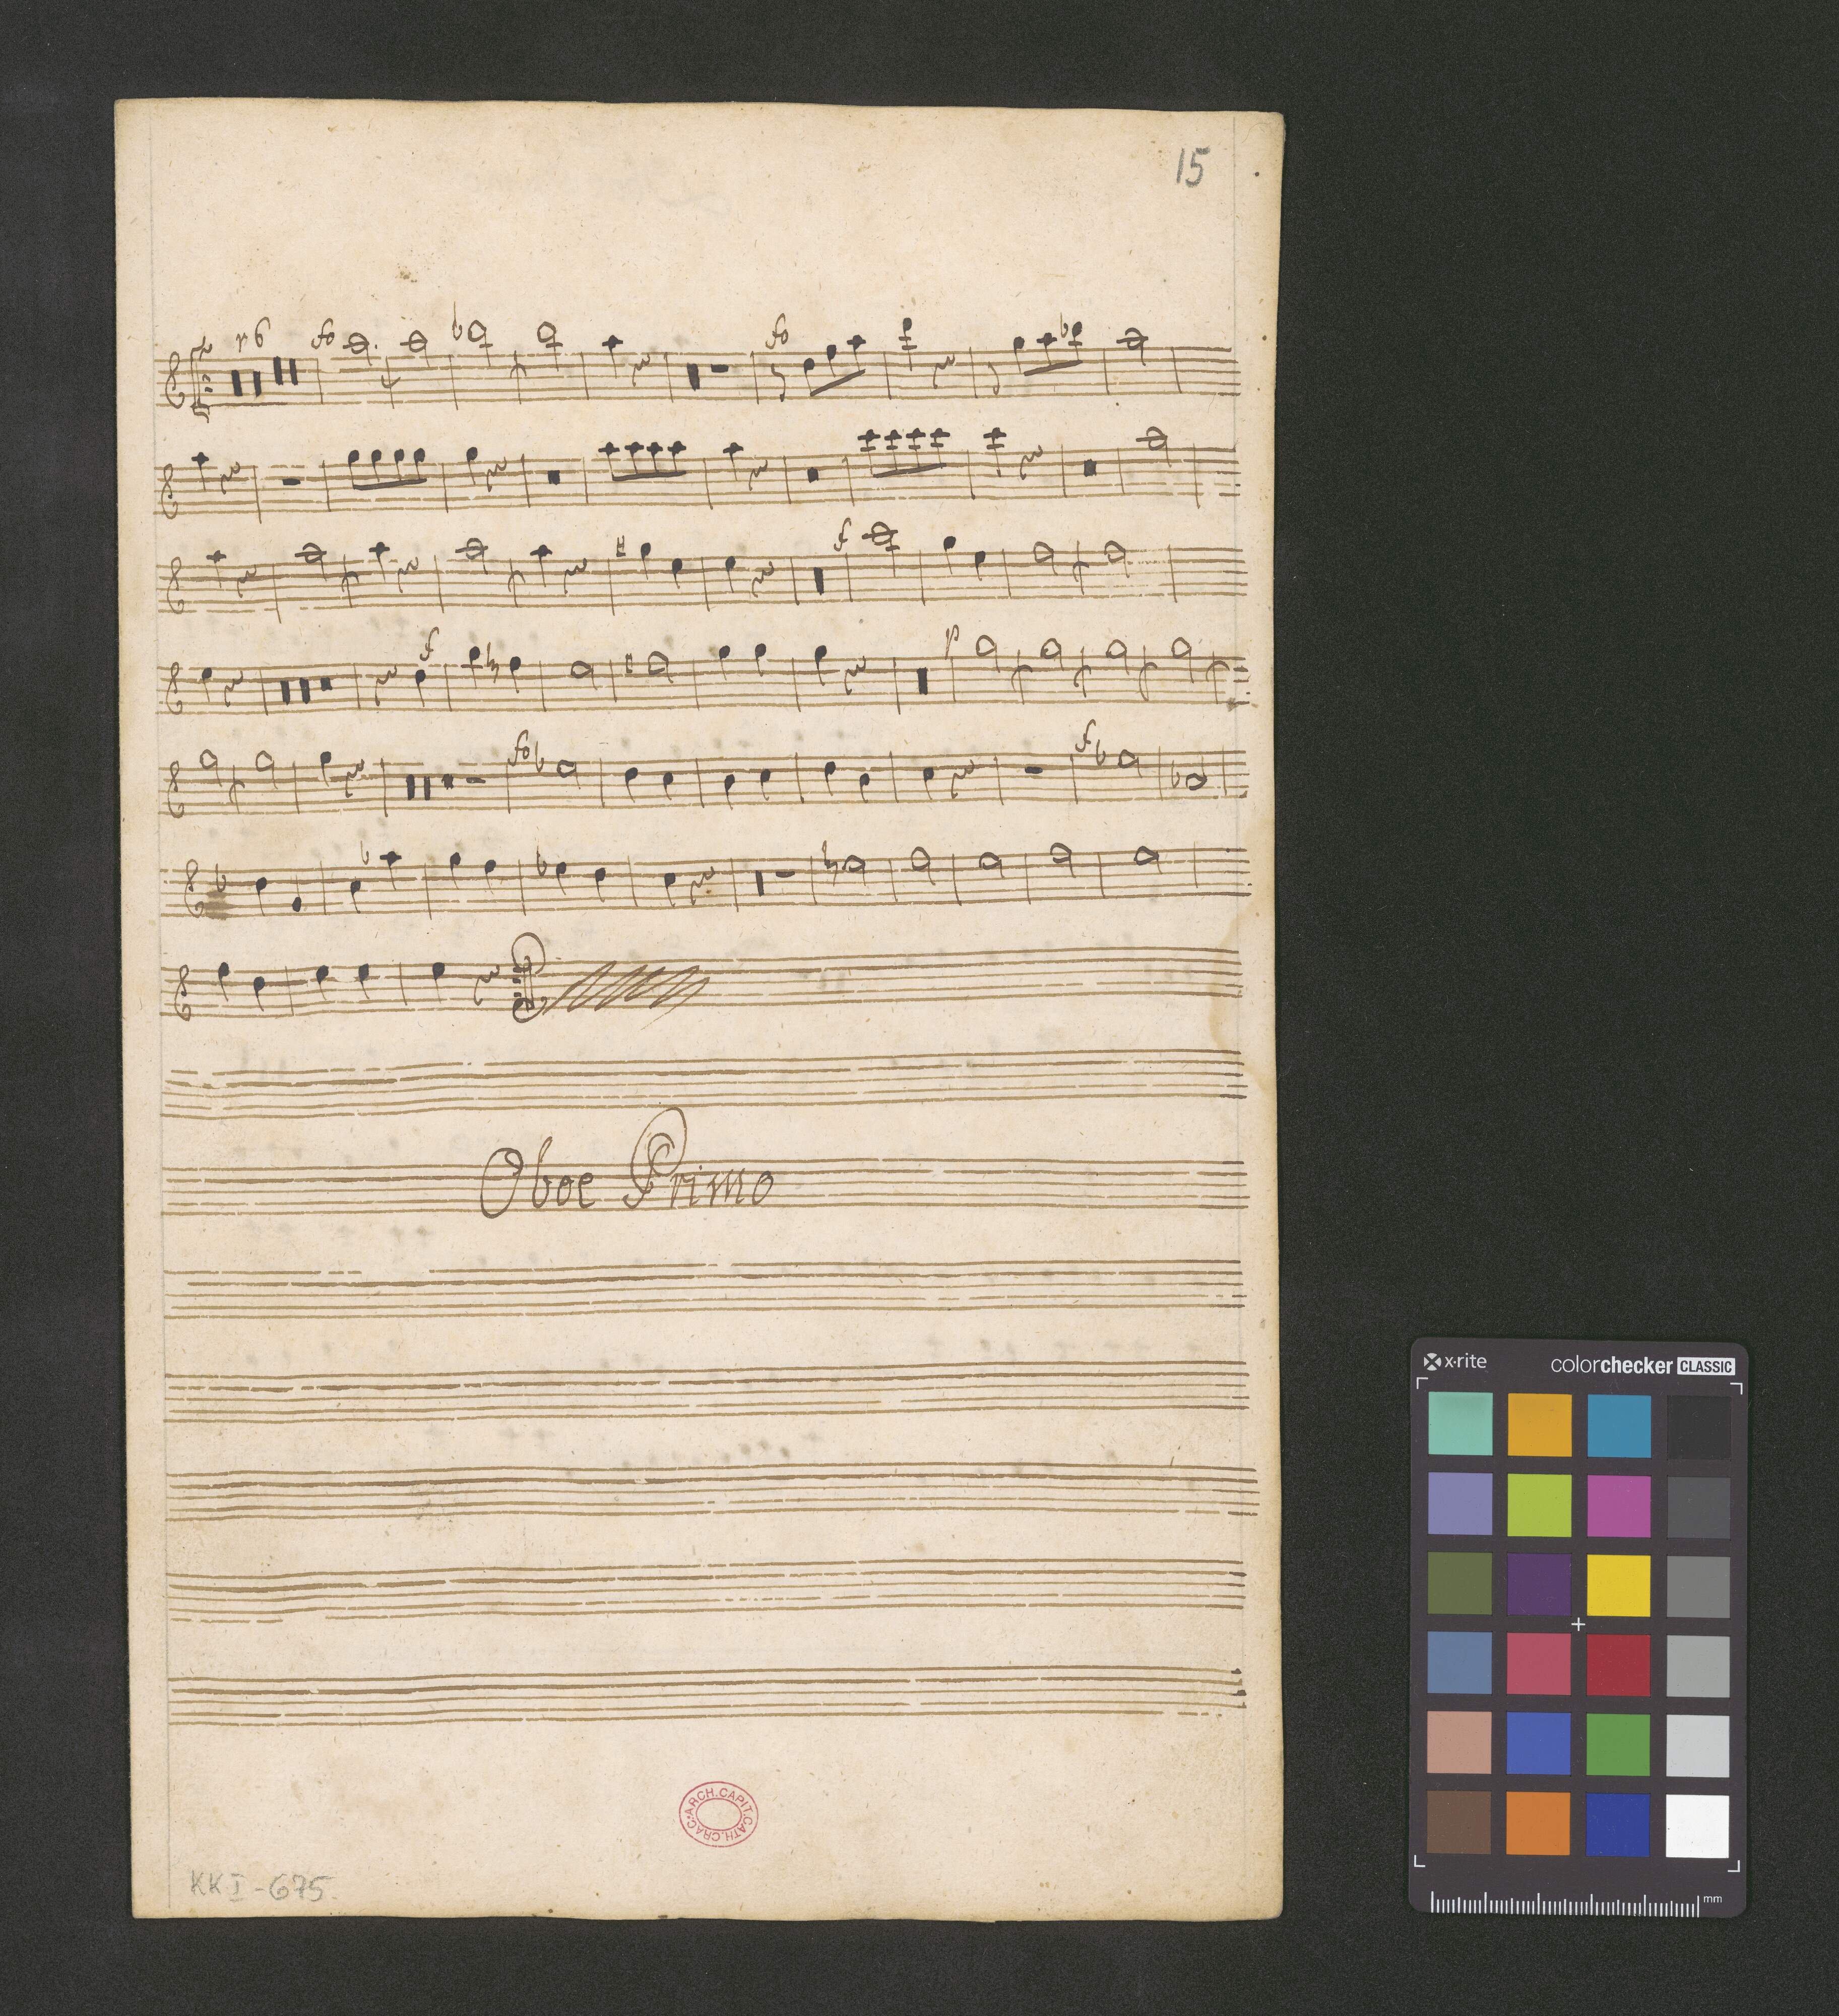 15
16
fo
fo
f
f
p
fo
f
Oboe Primo
ARCH.CAPIT.CATH.CRAC.
KK I - 675.
x·rite colorchecker CLASSIC
mm